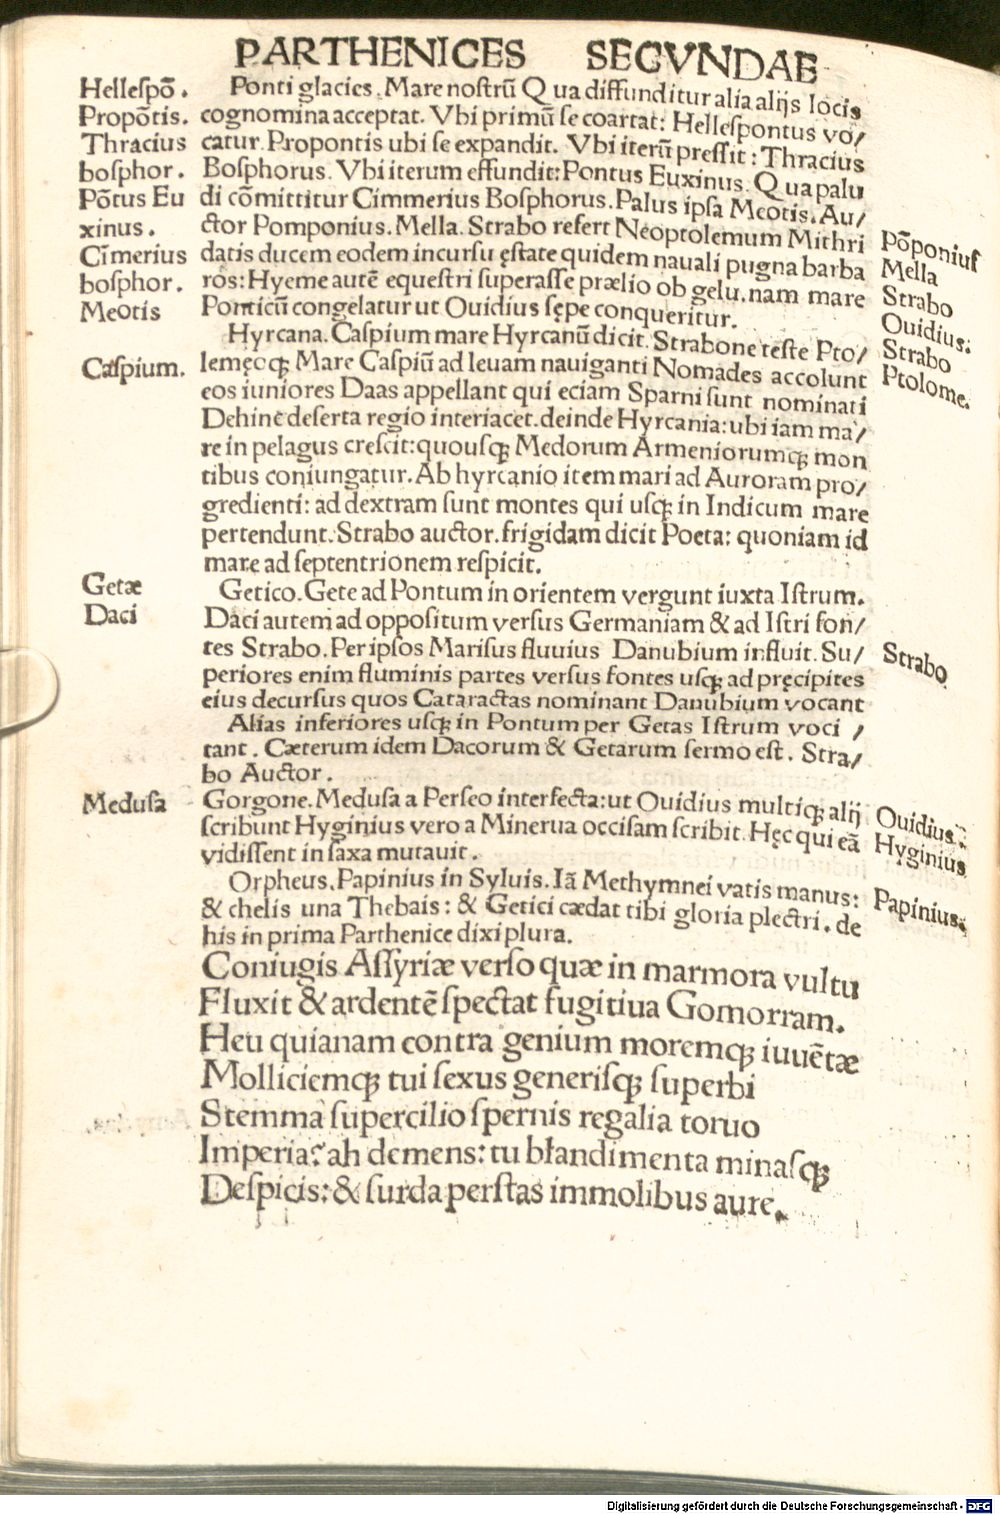 PARTHENICES SECVNDAE
Helleſpō. Ponti glacies. Mare noſtrū Qua diffunditur alia alijs locis
Propōtis. cognomina acceptat. Vbi primū ſe coartat: Helleſpontus vo/
Thracius catur. Propontis ubi ſe expandit. Vbi iterū preſſit: Thracius
boſphor. Boſphorus. Vbi iterum effundit: Pontus Euxinus. Qua palu
Pōtus Eu di cōmittitur Cimmerius Boſphorus. Palus ipſa Meotis. Au/
xinus. ctor Pomponius. Mella. Strabo refert Neoptolemum Mithri Pōponiuſ
Cīmerius datis ducem eodem incurſu ęſtate quidem nauali pugna barba Mella
boſphor. ros: Hyeme autē equeſtri ſuperaſſe prælio ob gelu. nam mare Strabo
Meotis Ponticū congelatur ut Ouidius ſępe conqueritur. Ouidius:
Hyrcana. Caſpium mare Hyrcanū dicit. Strabone teſte Pto/ Strabo
Caſpium. lemęoq́ꝫ Mare Caſpiū ad leuam nauiganti Nomades accolunt Ptolome.
eos iuniores Daas appellant qui eciam Sparni ſunt nominati
Dehinc deſerta regio interiacet. deinde Hyrcania: ubi iam ma/
re in pelagus creſcit: quouſq́ꝫ Medorum Armeniorumq́ꝫ mon
tibus coniungatur. Ab hyrcanio item mari ad Auroram pro/
gredienti: ad dextram ſunt montes qui uſq́ꝫ in Indicum mare
pertendunt. Strabo auctor. frigidam dicit Poeta: quoniam id
mare ad ſeptentrionem reſpicit.
Getæ Getico. Gete ad Pontum in orientem vergunt iuxta Iſtrum.
Daci Daci autem ad oppoſitum verſus Germaniam & ad Iſtri fon/
tes Strabo. Per ipſos Mariſus fluuius Danubium influit. Su/ Strabo
periores enim fluminis partes verſus fontes uſq́ꝫ ad pręcipites
eius decurſus quos Cataractas nominant Danubium vocant
Alias inferiores uſq́ꝫ in Pontum per Getas Iſtrum voci /
tant. Cæterum idem Dacorum & Getarum ſermo eſt. Stra/
bo Auctor.
Meduſa Gorgone. Meduſa a Perſeo interfecta: ut Ouidius multiq́ꝫ alij Ouidius.
ſcribunt Hyginius vero a Minerua occiſam ſcribit. Hęc qui eā Hyginius
vidiſſent in ſaxa mutauit.
Orpheus. Papinius in Syluis. Iā Methymnei vatis manus: Papinius.
& chelis una Thebais: & Getici cædat tibi gloria plectri. de
his in prima Parthenice dixi plura.
Coniugis Aſſyriæ verſo quæ in marmora vultu
Fluxit & ardentē ſpectat fugitiua Gomorram.
Heu quianam contra genium moremq́ꝫ iuuētæ
Molliciemq́ꝫ tui ſexus generiſq́ꝫ ſuperbi
Stemma ſupercilio ſpernis regalia toruo
Imperia? ah demens: tu blandimenta minaſq́ꝫ
Deſpicis: & ſurda perſtas immolibus aure.
Digitalisierung gefördert durch die Deutsche Forschungsgemeinschaft - DFG